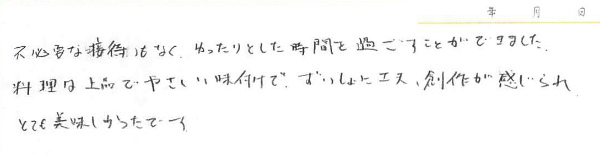 年 月 日
不必要な接待もなく、ゆったりとした時間を過ごすことができました。
料理は上品でやさしい味付けで、ずいしょに工夫、創作が感じられ
とても美味しかったです